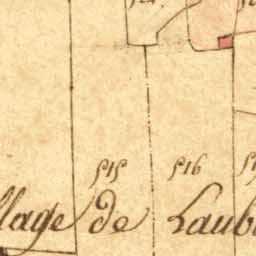 515 516
llage de Laub